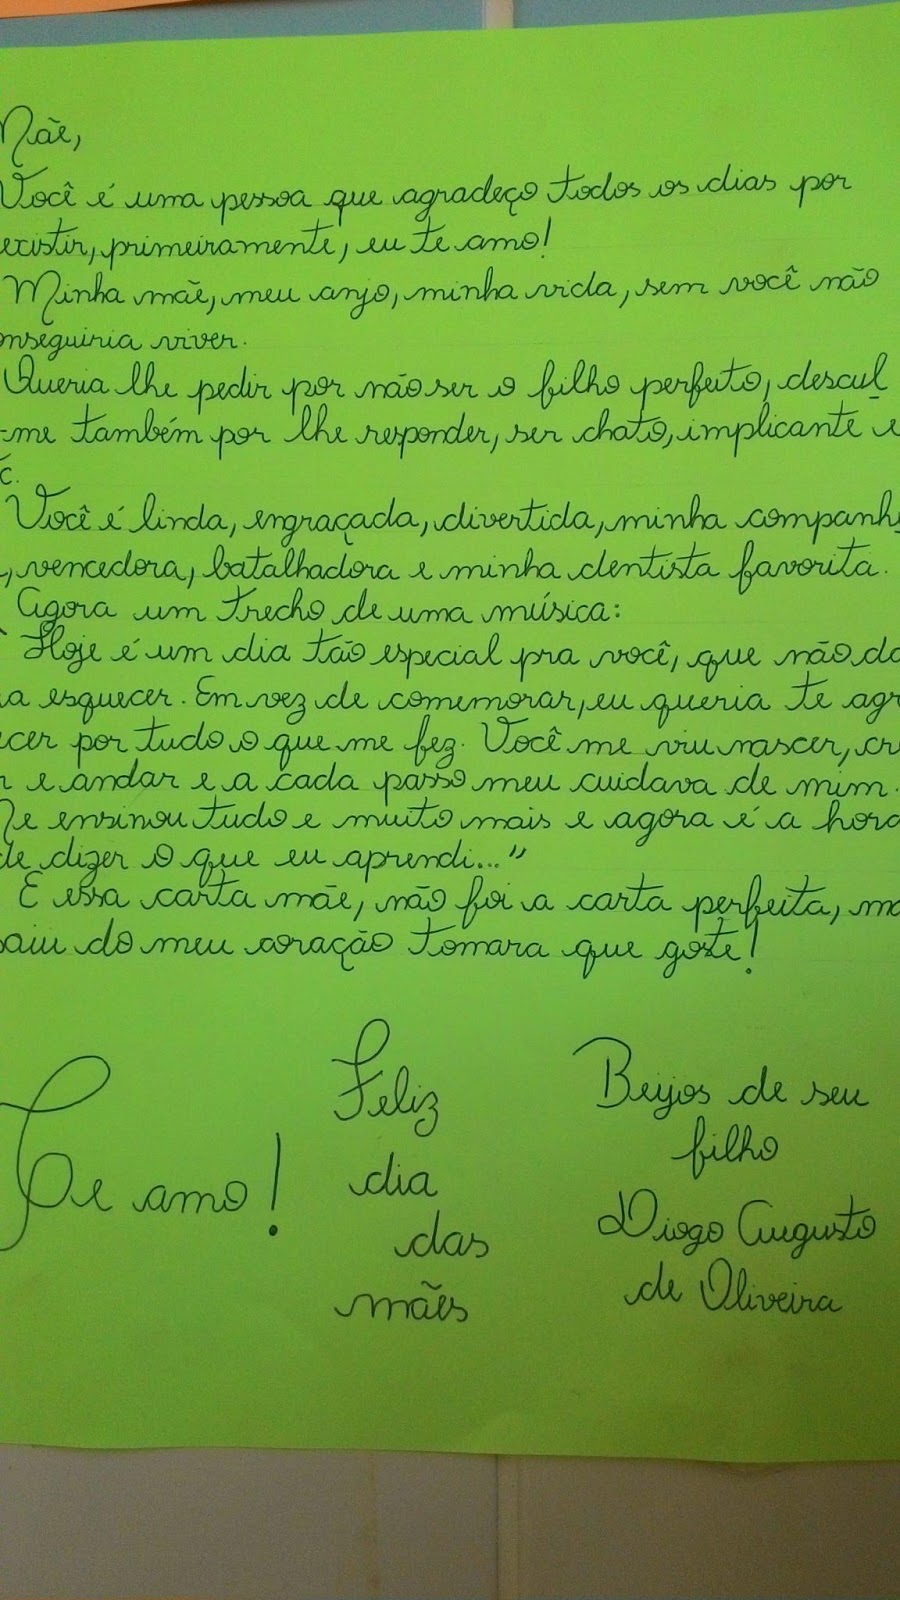 Mãe,
Você é uma pessoa que agradeço todos os dias por
existir, primeiramente, eu te amo!
Minha mãe, meu anjo, minha vida, sem você não
onseguiria viver.
Queria lhe pedir por não ser o filho perfeito, descul
-me também por lhe responder, ser chato, implicante e
c.
Você é linda, engraçada, divertida, minha companhe
, vencedora, batalhadora e minha dentista favorita.
Agora um trecho de uma música:
Hoje é um dia tão especial pra você, que não da
a esquecer. Em vez de comemorar, eu queria te agr
ecer por tudo o que me fez. Você me viu nascer, cr
r e andar e a cada passo meu cuidava de mim.
Me ensinou tudo e muito mais e agora é a hora
de dizer o que eu aprendi..."
E essa carta mãe, não foi a carta perfeita, ma
saiu do meu coração tomara que goste!
Te amo!
Feliz
dia
das
mães
Beijos de seu
filho
Diogo Augusto
de Oliveira